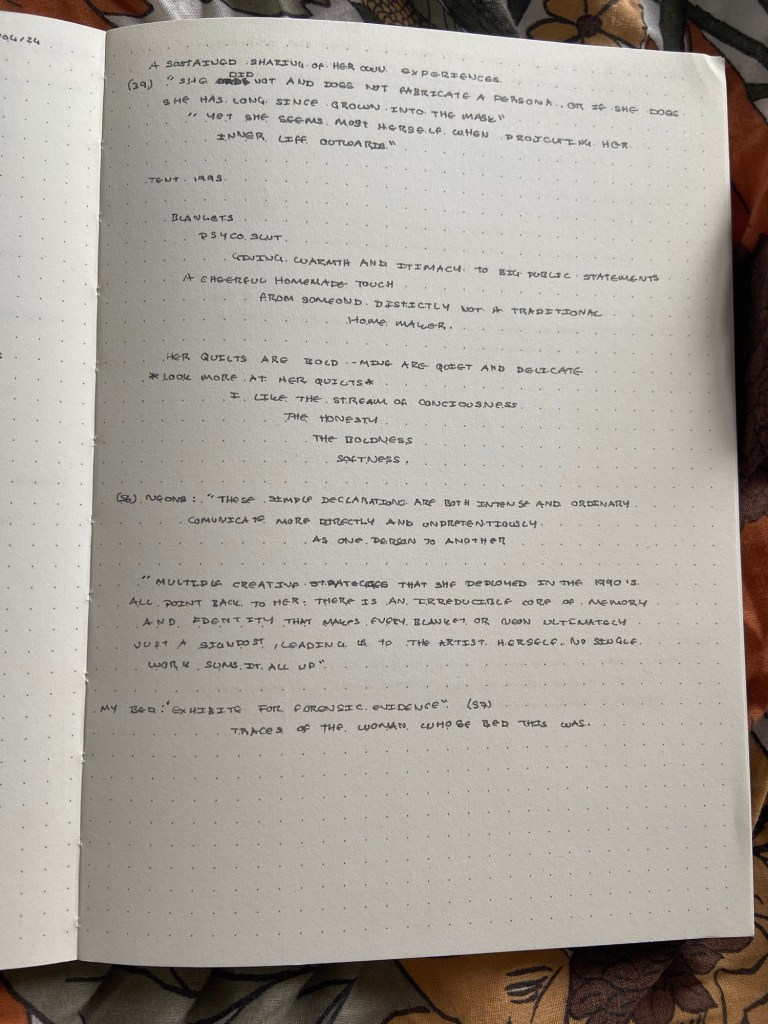 04/24
A SUSTAINED SHARING OF HER OWN EXPERIENCES.
DID
(39) "SHE NOT AND DOES NOT FABRICATE A PERSONA, OR IF SHE DOES
SHE HAS LONG SINCE GROWN INTO THE MASK"
"YET SHE SEEMS MOST HERSELF WHEN PROJCUTING HER
INNER LIFF OUTWARDS."
TENT 1995.
BLANKETS
PSYCO SLUT.
GIVING WARMTH AND ITIMACY TO BIG PUBLIC STATEMENTS
A CHEERFUL HOMEMADE TOUCH
FROM SOMEOND DISTICTLY NOT A TRADITIONAL
HOME MAKER.
HER QUILTS ARE BOLD -- MINE ARE QUIET AND DELICATE
*LOOK MORE AT HER QUILTS*
I LIKE THE STREAM OF CONCIOUSNESS
THE HONESTY
THE BOLDNESS
SOFTNESS,
(56) NEONS: "THESE SIMPLE DECLARATIONS ARE BOTH INTENSE AND ORDINARY.
COMUNICATE MORE DIRECTLY AND UNPRETENTIOUSLY.
AS ONE PERSON TO ANOTHER
"MULTIPLE CREATIVE STRATEGIES THAT SHE DEPLOYED IN THE 1990'S
ALL POINT BACK TO HER: THERE IS AN IRREDUCIBLE CORE OF MEMORY
AND IDENTITY THAT MAKES EVERY BLANKET OR NEON ULTEMATELY
JUST A SIGNPOST, LEADING US TO THE ARTIST HERSELF. NO SINGLE
WORK SUMS IT ALL UP".
MY BED: "EXHIBITS FOR FORENSIC EVIDENCE". (57)
TRACES OF THE WOMAN WHOSE BED THIS WAS.